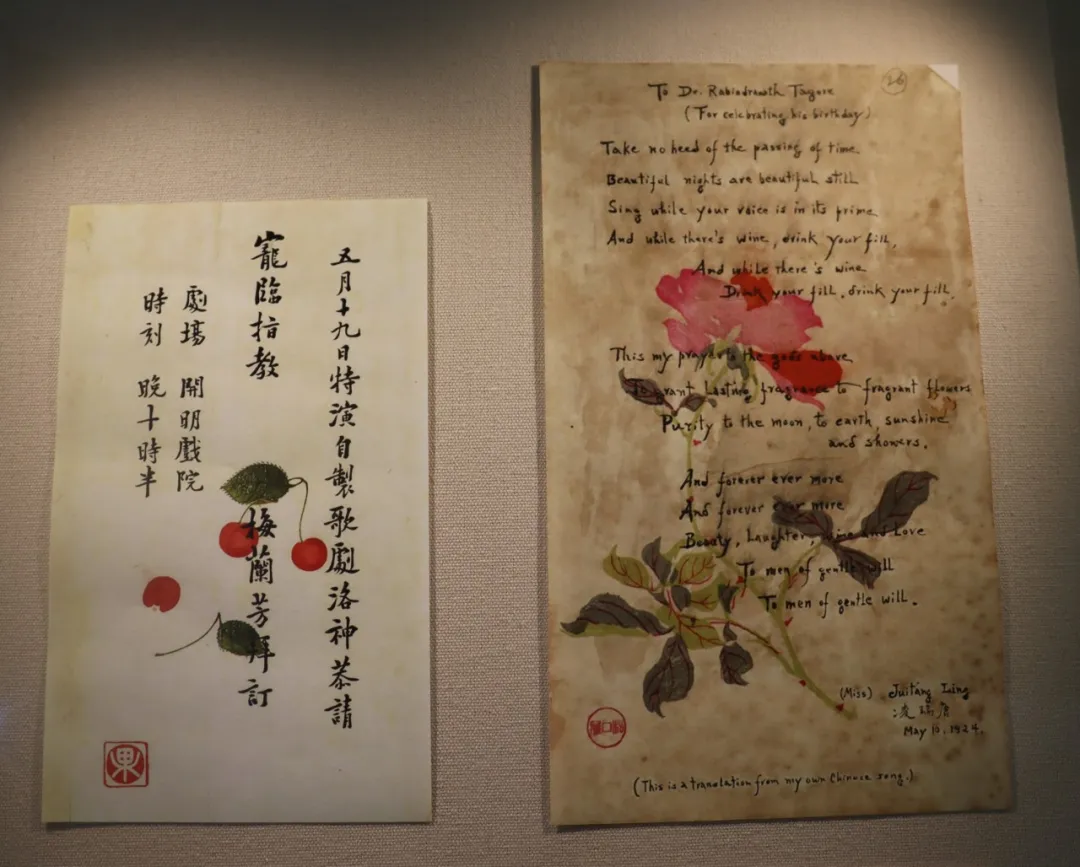 五月十九日特演自製歌劇洛神恭請
寵臨指教
梅蘭芳拜訂
劇場 開明戲院
時刻 晚十時半
26
To Dr. Rabindranath Tagore
(For celebrating his birthday)
Take no heed of the passing of time.
Beautiful nights are beautiful still
Sing while your voice is in its prime
And while there's wine, drink your fill,
And while there's wine
Drink your fill, drink your fill.
This my prayer to the gods above
To grant lasting fragrance to fragrant flowers
Purity to the moon, to earth, sunshine
and showers.
And forever ever more
And forever ever more
Beauty, Laughter, Wine and Love
To men of gentle will
To men of gentle will.
(Miss) Juitáng Ling
凌瑞唐
May 10. 1924.
(This is a translation from my own Chinese song.)